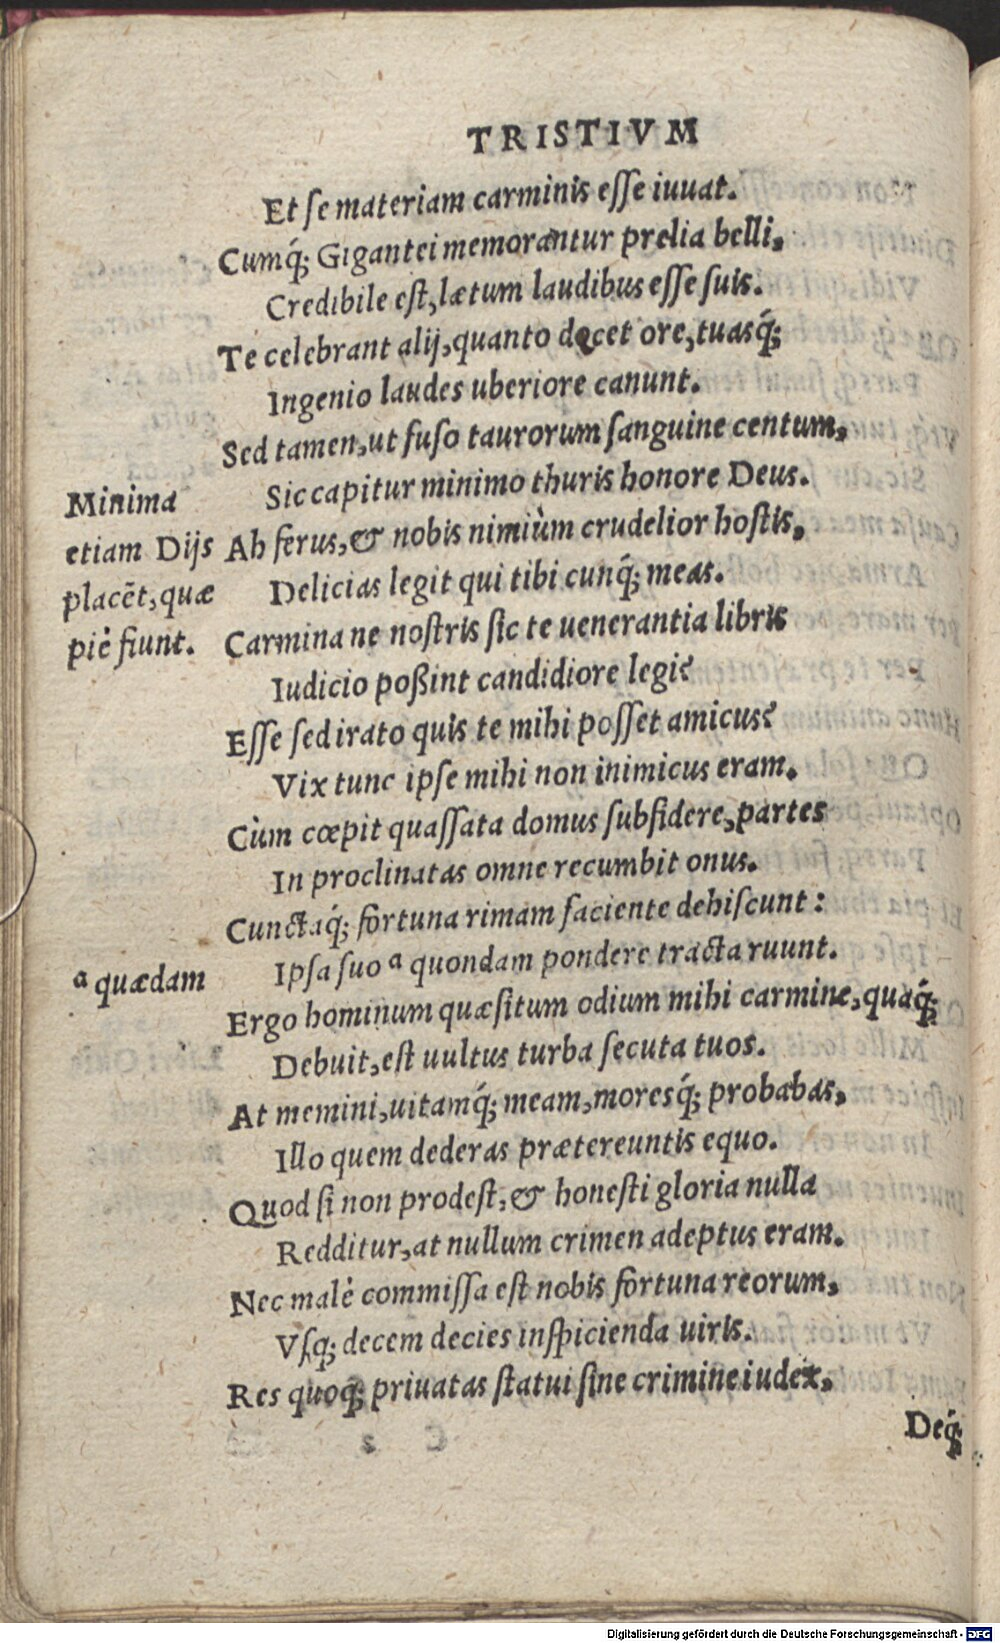 TRISTIVM
Et se materiam carminis esse iuuat.
Cumq́; Gigantei memorantur prelia belli,
Credibile est, lætum laudibus esse suis.
Te celebrant alij, quanto decet ore, tuasq́;
Ingenio laudes uberiore canunt.
Sed tamen, ut fuso taurorum sanguine centum,
Sic capitur minimo thuris honore Deus.
Ah ferus, & nobis nimiùm crudelior hostis,
Delicias legit qui tibi cunq́; meas.
Carmina ne nostris sic te uenerantia libris
Iudicio poßint candidiore legi?
Esse sed irato quis te mihi posset amicus?
Vix tunc ipse mihi non inimicus eram.
Cùm cœpit quassata domus subsidere, partes
In proclinatas omne recumbit onus.
Cunctaq́; fortuna rimam faciente dehiscunt:
Ipsa suo ª quondam pondere tracta ruunt.
Ergo hominum quæsitum odium mihi carmine, quaq́;
Debuit, est uultus turba secuta tuos.
At memini, uitamq́; meam, moresq́; probabas,
Illo quem dederas prætereuntis equo.
Quod si non prodest, & honesti gloria nulla
Redditur, at nullum crimen adeptus eram.
Nec malè commissa est nobis fortuna reorum,
Vsq; decem decies inspicienda uiris.
Res quoq; priuatas statui sine crimine iudex,
Deq́;
Minima
etiam Dijs
placẽt, quæ
piè fiunt.
ª quædam
Digitalisierung gefördert durch die Deutsche Forschungsgemeinschaft - DFG